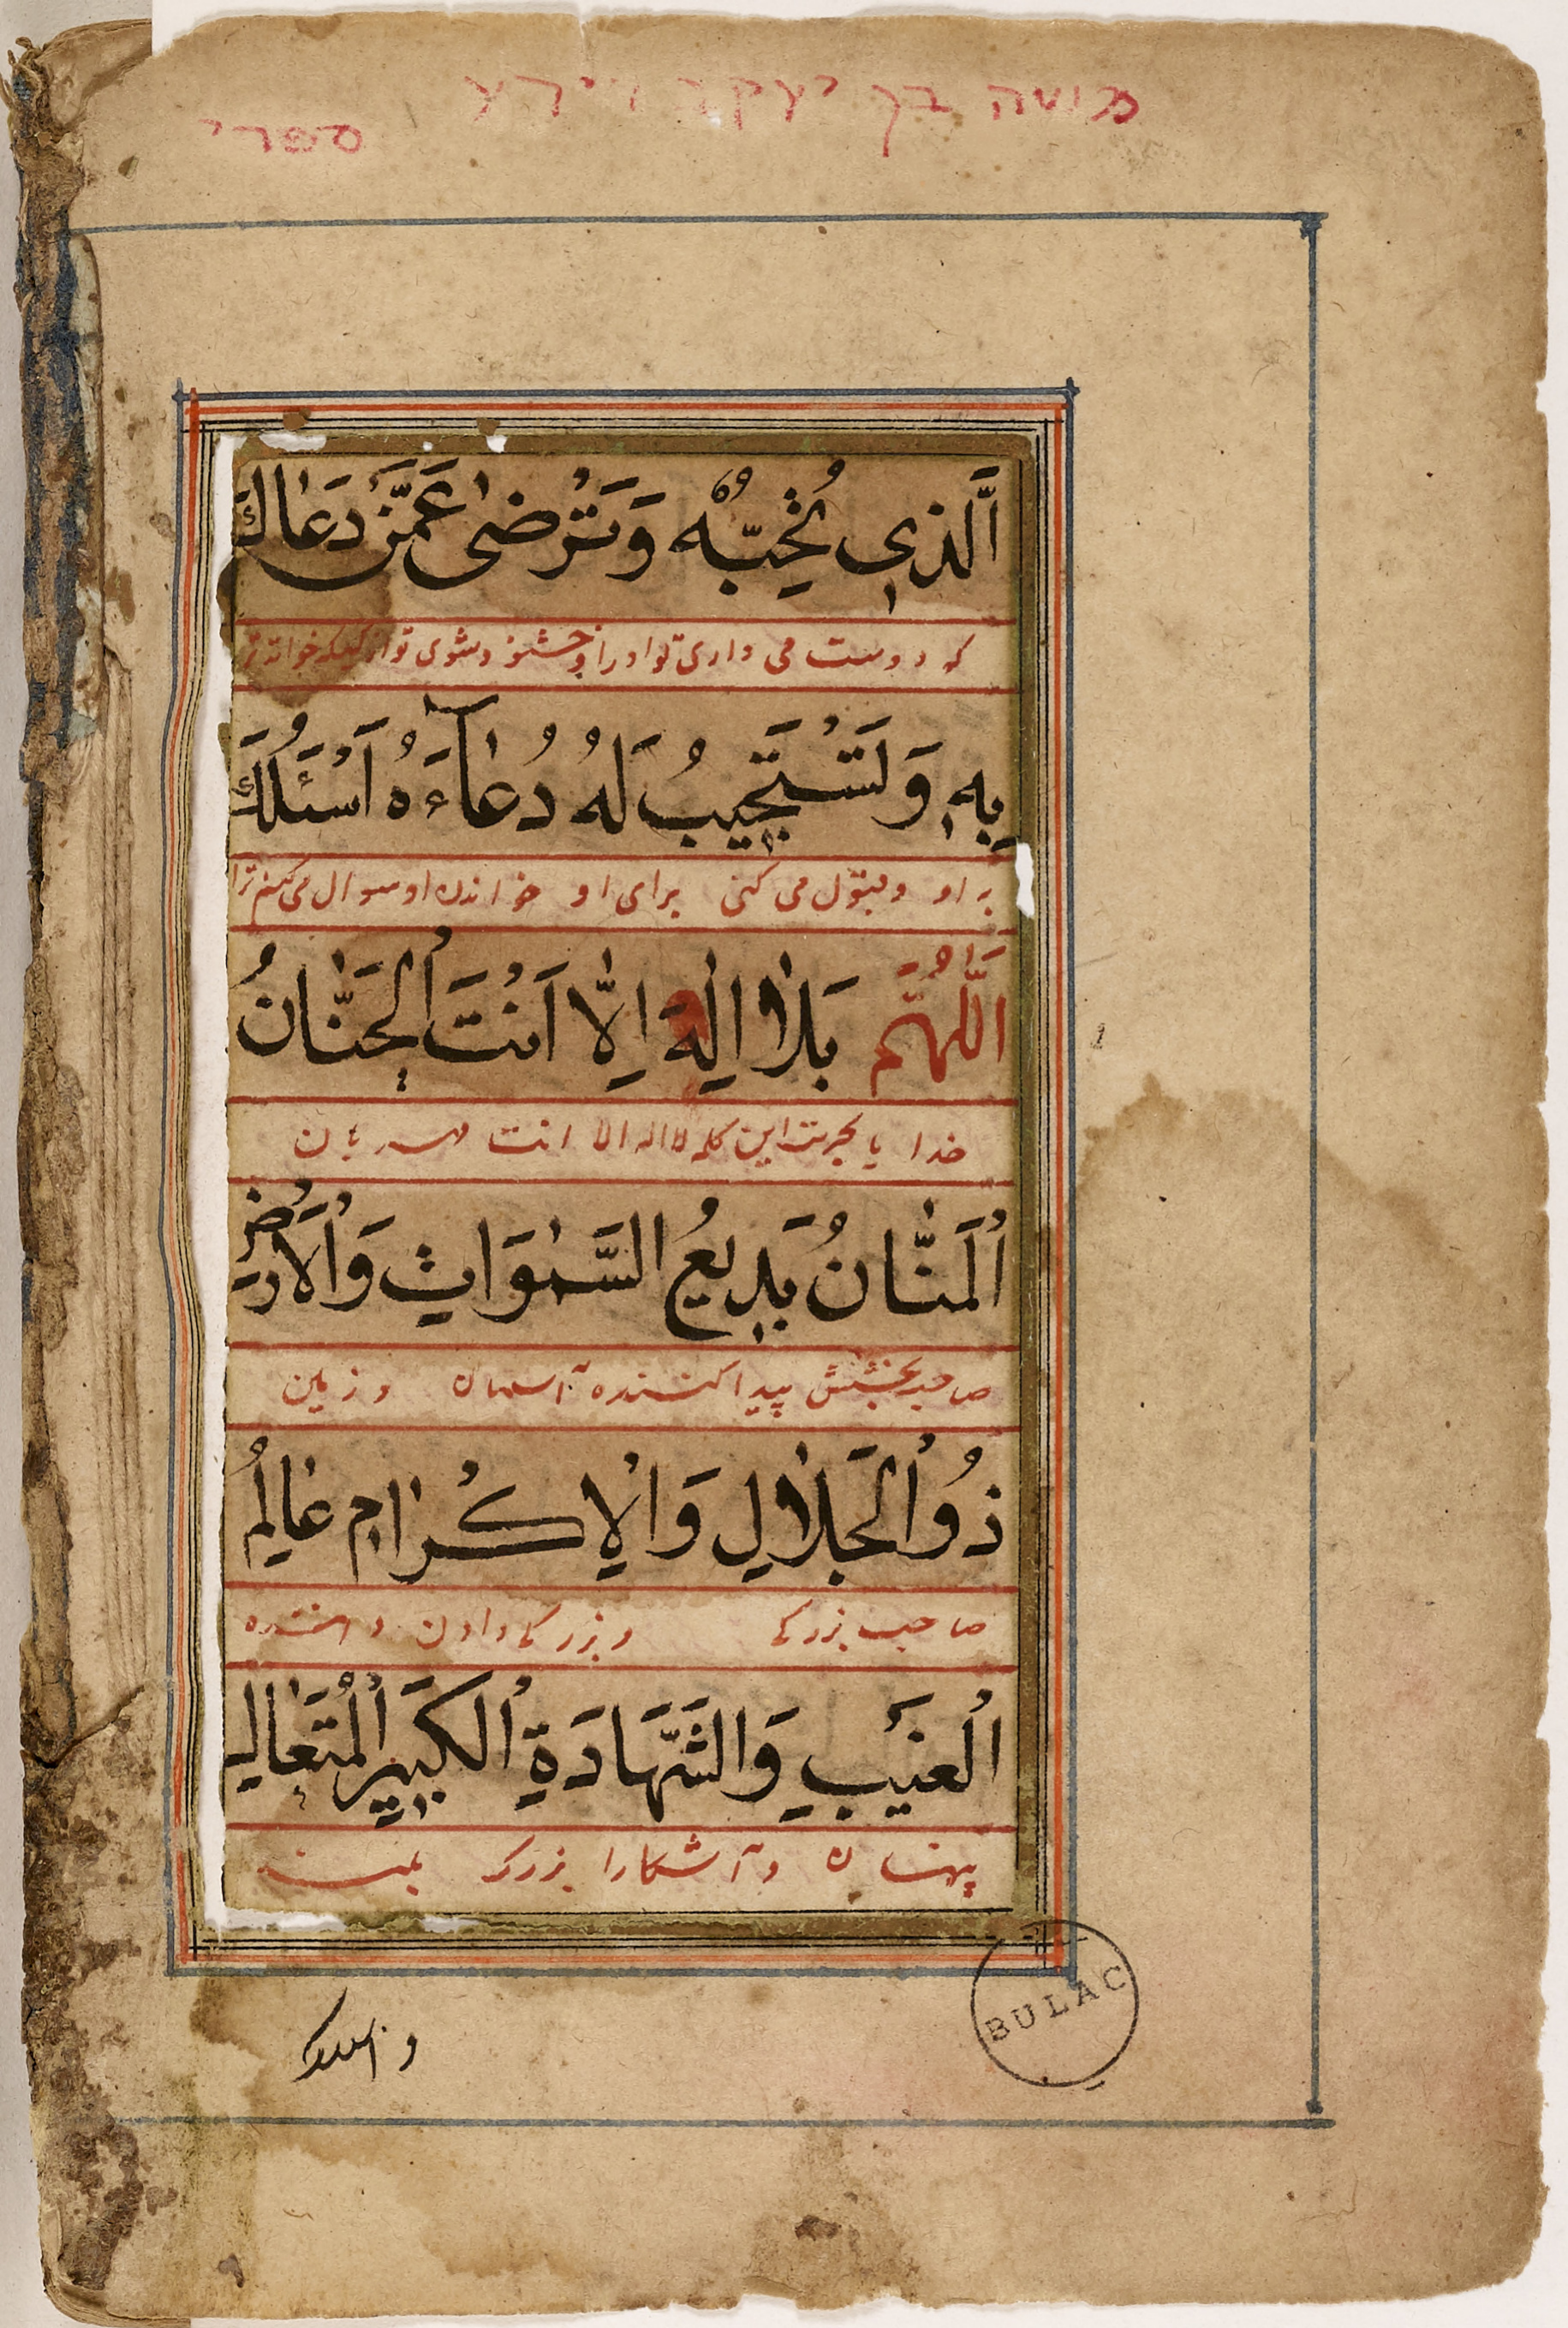 משה בן יעקב
ספרי
اَلَّذی تُحِبُّهُ وَتَرْضىٰ عَمَّنْ دَعٰاكَ
که دوست می داری تو او را و خشنود شوی تو از کسیکه خواند ترا
بِهِ وَتَسْتَجیبُ لَهُ دُعٰآءَهُ اَسْئَلُكَ
به او و قبول می کنی برای او خواندن او سوال می کنم ترا
اَللّٰهُمَّ بِلاٰ اِلٰهَ اِلّٰا اَنْتَ الْحَنّٰانُ
خدا یا بحرمت این کلمه لا اله الا انت مهربان
اَلْمَنّٰانُ بَدیعُ السَّمٰوَاتِ وَالْاَرْضِ
صاحب بخشش پیدا کننده آسمان و زمین
ذُو الْجَلاٰلِ وَالْاِكْرٰامِ عٰالِمُ
صاحب بزرکی و بزرکی دادن داننده
اَلْغَیْبِ وَالشَّهَادَةِ الْكَبیرِ الْمُتَعٰالِ
پنهان و آشکارا بزرک بلند
BULAC
و اسئلک